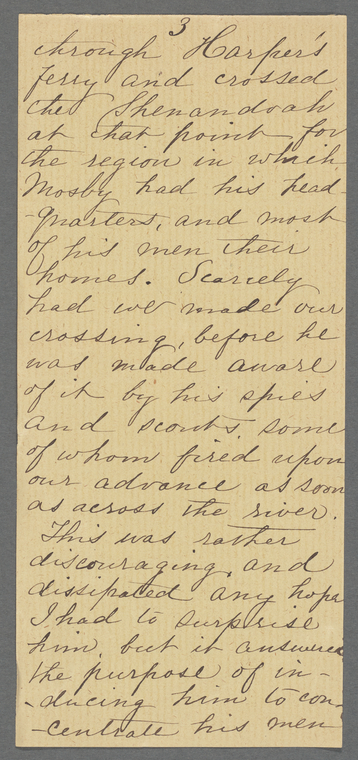 3
through Harper's
Ferry and crossed
the Shenandoah
at that point for
the region in which
Mosby had his head-
-quarters, and most
of his men their
homes. Scarcely
had we made our
crossing, before he
was made aware
of it by his spies
and scouts, some
of whom fired upon
our advance as soon
as across the river.
This was rather
discouraging, and
dissipated any hope
I had to surprise
him, but it answered
the purpose of in-
-ducing him to con-
-centrate his men